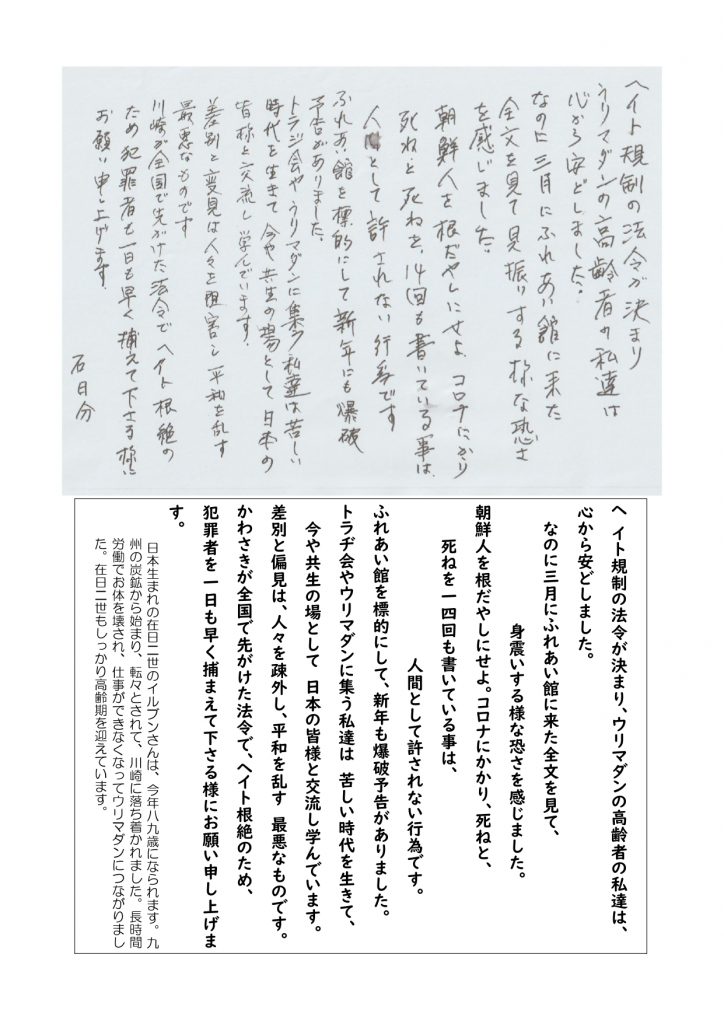 ヘイト規制の法令が決まり
ウリマダンの高齢者の私達は
心から安どしました。
なのに三月にふれあい館に来た
全文を見て見振りする様な恐さ
を感じました。
朝鮮人を根だやしにせよ コロナにかかり
死ねと死ねを、14回も書いている事は
人として許されない行為です
ふれあい館を標的にして新年にも爆破
予告がありました。
トラジ会やウリマダンに集う私達は苦しい
時代を生きて今や共生の場として日本の
皆様と交流し学んでいます。
差別と変見は人々を阻害し平和を乱す
最悪なものです
川崎が全国で先がけた法令でヘイト根絶の
ため犯罪者も一日も早く捕えて下さる様に
お願い申し上げます。
石日分
ヘイト規制の法令が決まり、ウリマダンの高齢者の私達は、
心から安どしました。
なのに三月にふれあい館に来た全文を見て、
身震いする様な恐さを感じました。
朝鮮人を根だやしにせよ。コロナにかかり、死ねと、
死ねを一四回も書いている事は、
人間として許されない行為です。
ふれあい館を標的にして、新年も爆破予告がありました。
トラヂ会やウリマダンに集う私達は 苦しい時代を生きて、
今や共生の場として 日本の皆様と交流し学んでいます。
差別と偏見は、人々を疎外し、平和を乱す 最悪なものです。
かわさきが全国で先がけた法令で、ヘイト根絶のため、
犯罪者を一日も早く捕まえて下さる様にお願い申し上げま
す。
日本生まれの在日二世のイルブンさんは、今年八九歳になられます。九
州の炭鉱から始まり、転々とされて、川崎に落ち着かれました。長時間
労働でお体を壊され、仕事ができなくなってウリマダンにつながりまし
た。在日二世もしっかり高齢期を迎えています。